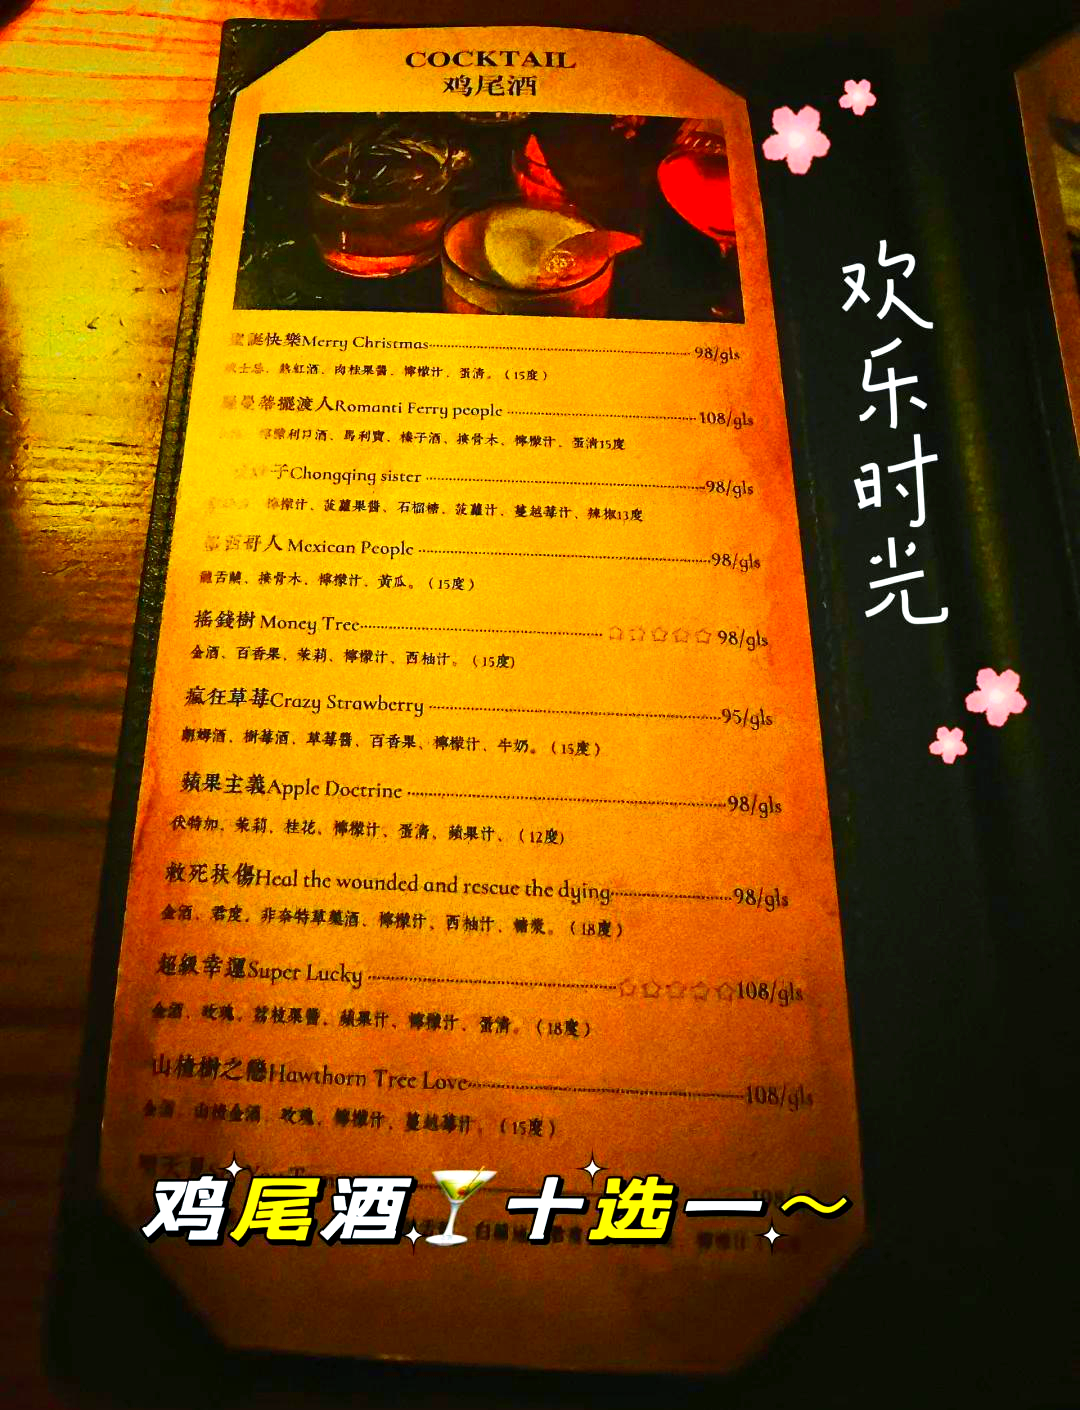 COCKTAIL
鸡尾酒
誕快樂Merry Christmas 98/gls
士忌、熱紅酒、肉桂果醬、檸檬汁、蛋清。（15度）
蒂擺渡人Romanti Ferry people 108/gls
檸檬利口酒、馬利寶、榛子酒、接骨木、檸檬汁、蛋清15度
子Chongqing sister 98/gls
檸檬汁、菠蘿果醬、石榴糖、菠蘿汁、蔓越莓汁、辣椒13度
西哥人 Mexican People 98/gls
龍舌蘭、接骨木、檸檬汁、黃瓜。（15度）
搖錢樹 Money Tree ☆☆☆☆☆ 98/gls
金酒、百香果、茉莉、檸檬汁、西柚汁。（15度）
瘋狂草莓Crazy Strawberry 95/gls
朗姆酒、樹莓酒、草莓醬、百香果、檸檬汁、牛奶。（15度）
蘋果主義Apple Doctrine 98/gls
伏特加、茉莉、桂花、檸檬汁、蛋清、蘋果汁、（12度）
救死扶傷Heal the wounded and rescue the dying 98/gls
金酒、君度、非奈特草藥酒、檸檬汁、西柚汁、糖漿。（18度）
超級幸運Super Lucky ☆☆☆☆☆108/gls
金酒、玫瑰、荔枝果醬、蘋果汁、檸檬汁、蛋清。（18度）
山楂樹之戀Hawthorn Tree Love 108/gls
金酒、山楂金酒、玫瑰、檸檬汁、蔓越莓汁。（15度）
欢乐时光
鸡尾酒🍸十选一～